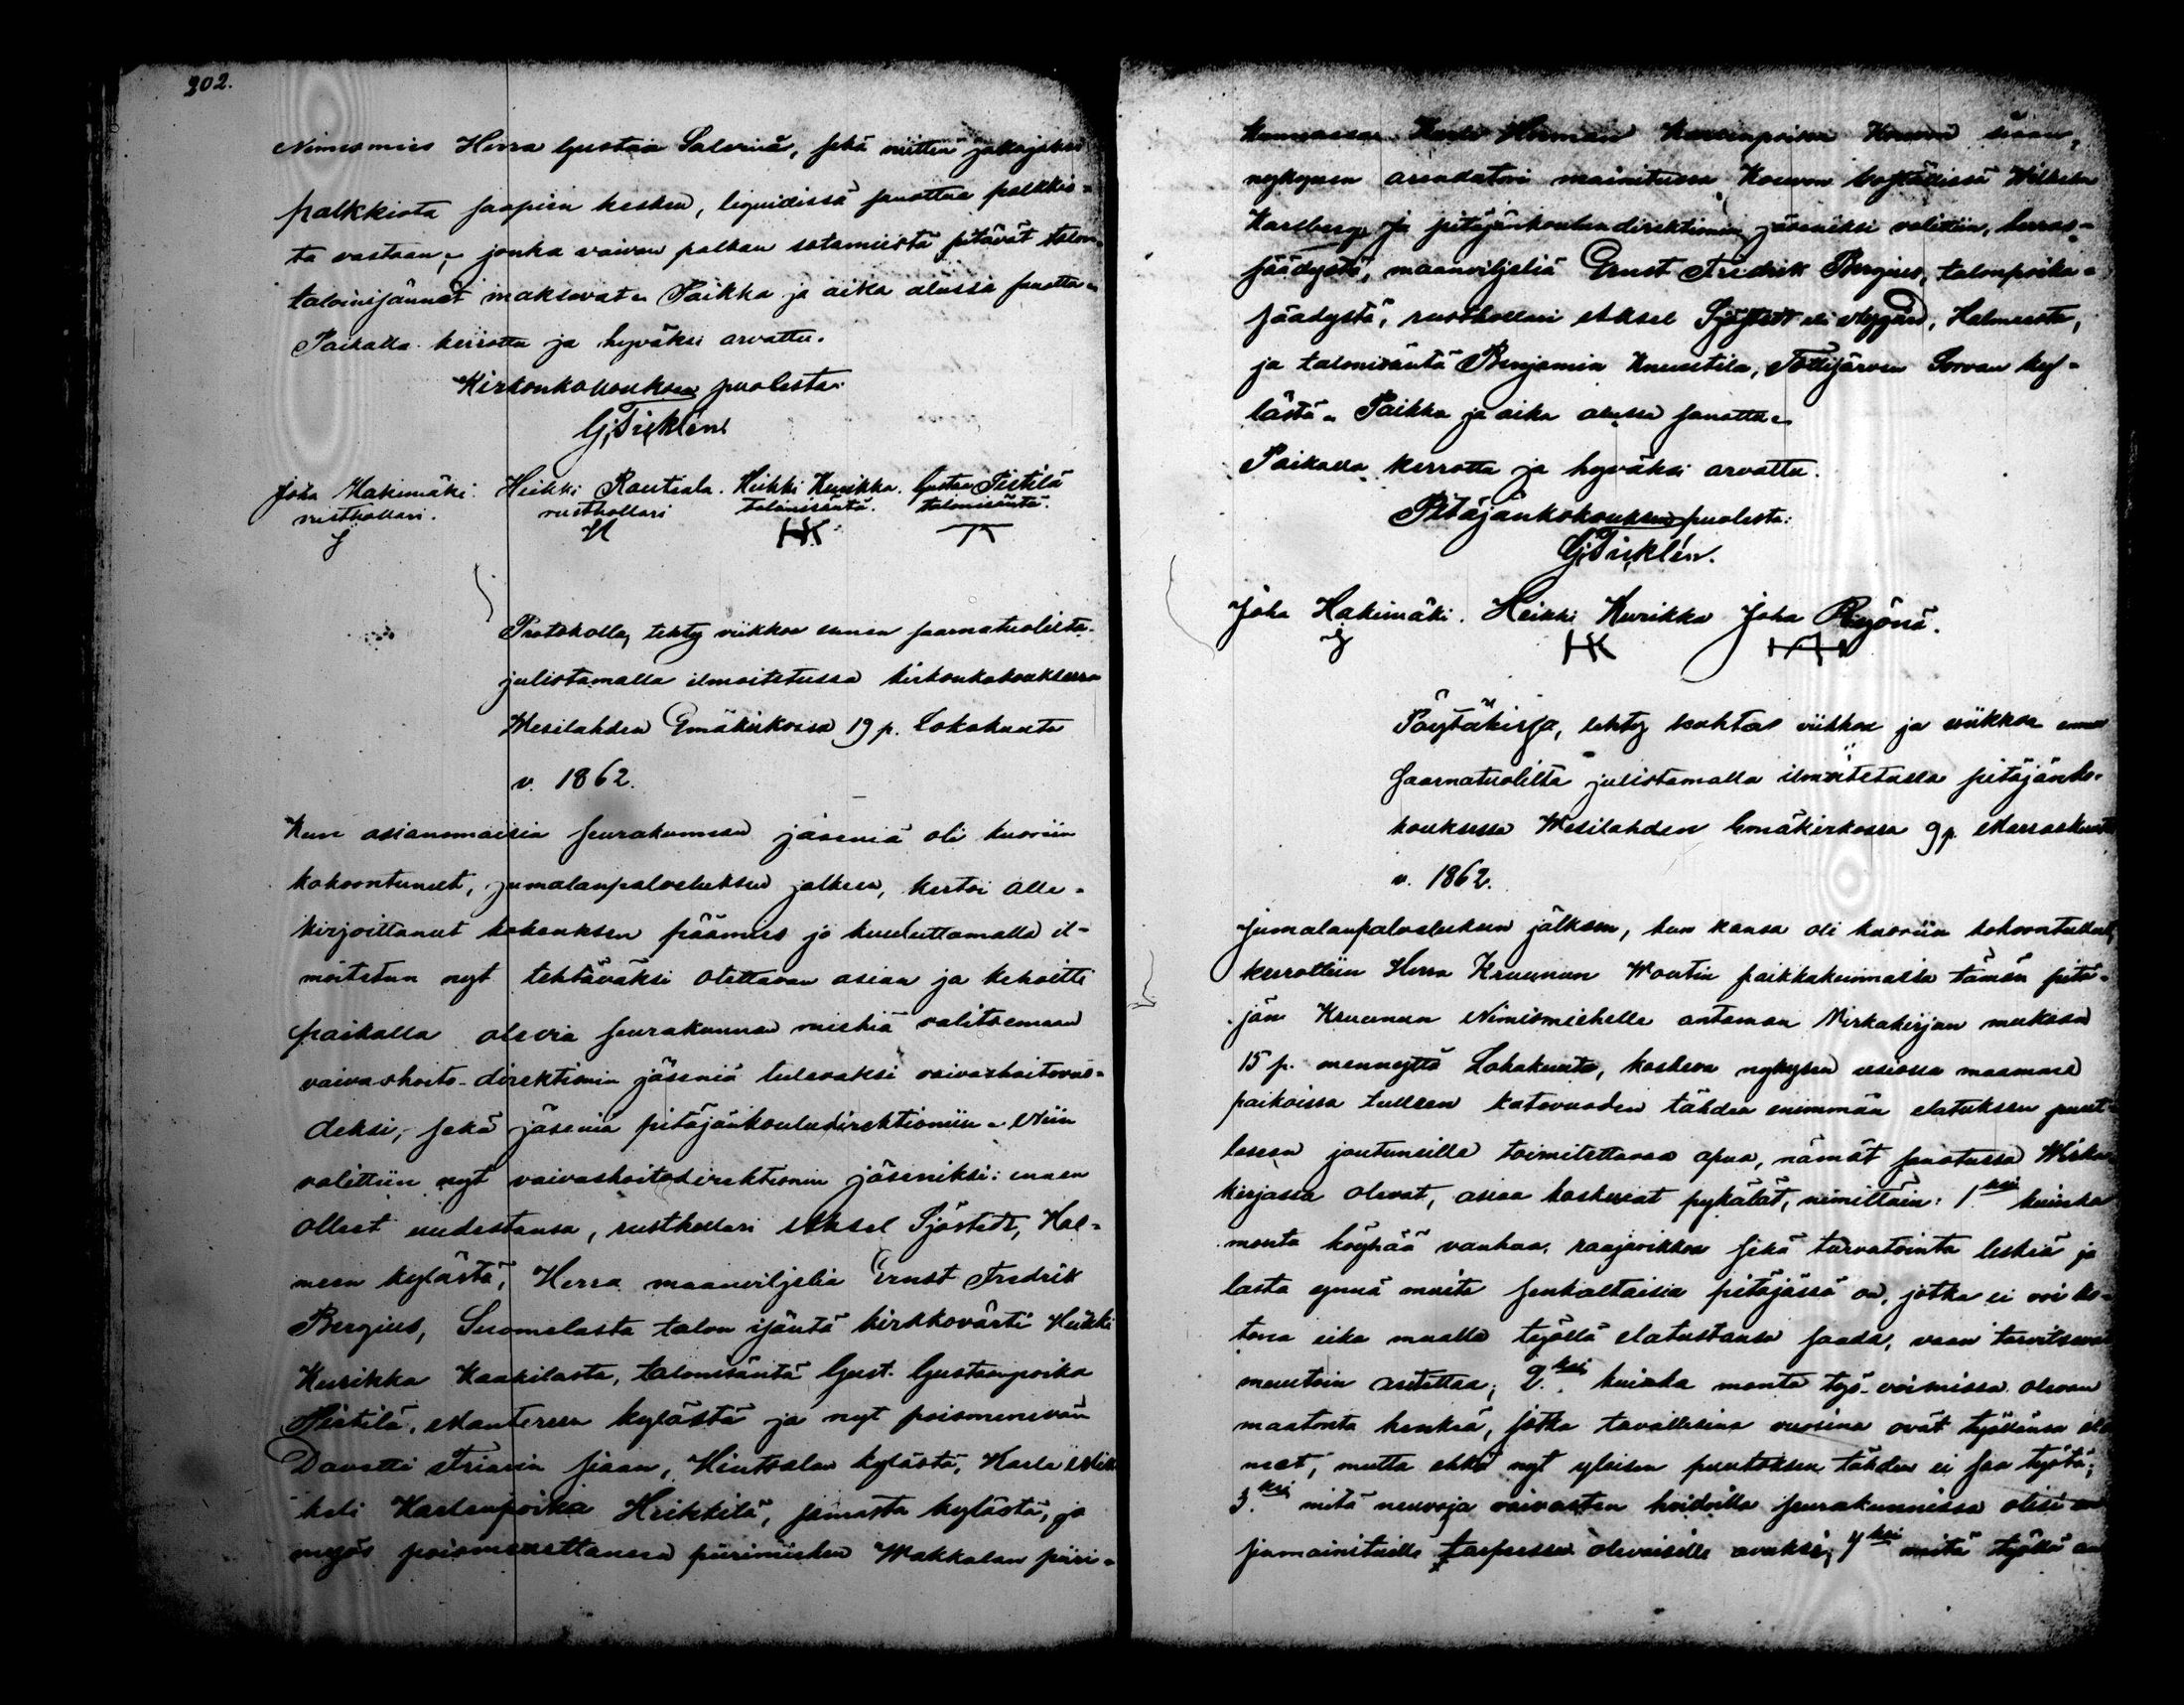 202.
Nimismies Herra Gustaa Salenia, sekä niitten jakajaksi
palkkiota saapien kesken, liquidissä sanottua palkkio-
ta vastaan, jonka vaivan palkan sotamiestä pitävät talon
taloinisännät maksavat. Paikka ja aika alussa sanottu.
Paikalla kerrottu ja hyväksi arvattu.
Kirkonkokouksen puolesta:
G. Ticklén
Joha Hakimäki. Heikki Rautiala. Heikki Kurikka. Gustaa Pietilä
rusthollari. rusthollari talonisäntä. talonisäntä.
HK
Protokolla, tehty viikkoa ennen saarnatuolista
julistamalla ilmoitetussa kirkonkokouksessa
Wesilahden Emäkirkossa 19 p. Lokakuuta
v. 1862.
Kun asianomaisia seurakunnan jäseniä oli kuoriin
kokoontuneet, jumalanpalveluksen jälkeen, kertoi alle-
kirjoittanut kokouksen päämies jo kuuluttamalla il-
moitetun nyt tehtäväksi otettavan asian ja kehoitti
paikalla olevia seurakunnan miehiä valitsemaan
vaivashoito-direktionin jäseniä tulevaksi vaivashoitovuo-
deksi, sekä jäseniä pitäjänkouludirektioniin. Niin
valittiin nyt vaivashoitodirektionin jäseniksi: ennen
olleet uudestansa, rusthollari Aksel Sjöstedt, Hal-
meen kylästä, Herra maanviljeliä Ernst Fredrik
Bergius, Suomelasta talon isäntä kirkkovärti Heikki
Kurikka Kaakilasta, talonisäntä Gust. Gustaanpoika
Pietilä, Mantereen kylästä ja nyt poismenevän
Davetti Friarin siaan, Hintsalan kylästä, Karla Mik
keli Karlenpoika Heikkilä, samasta kylästä, ja
myös poismuuttaneen piirimiehen Wakkalan piiri-
kunnassa Karle Herman Karlenpoika Kouvon siaan,
nykynen arendatori mainitussa Kouvon bostädissä Wilhelm
Karlberg. Ja pitäjänkoulun direktionin jäseniksi valittiin, herras-
säädystä, maanviljeliä Ernst Fredrik Bergius, talonpoika-
säädystä, rusthollari Aksel Sjöstedt eli Nygård, Halmeesta,
ja talonisäntä Benjamin Knuutila, Tottijärven Sorvan ky-
lästä. Paikka ja aika alussa sanottu.
Paikalla kerrottu ja hyväksi arvattu.
Pitäjänkokouksen puolesta:
G. Ticklén.
Joha Hakimäki. Heikki Kurikka Joha
HK
Pöytäkirja, tehty kahta viikkoa ja viikkoa ennen
saarnatuolilta julistamalla ilmoitetulla pitäjänko-
kouksessa Wesilahden Emäkirkossa 9 p. Marraskuuta
v. 1862.
Jumalanpalveluksen jälkeen, kun kansa oli kuoriin kokoontullut,
kerrottiin Herra Kruunun Woutin paikkakunnalla tämän pitä-
jän Kruunun Nimismiehelle antaman Virkakirjan mukaan
15 p. mennyttä Lokakuuta, koskeva nykysen vuosissa maamme
paikoissa tulleen katovuoden tähden enimmän elatuksen puut-
teseen joutuneille toimitettavaa apua, nämät sanotussa Wirka-
kirjassa olevat, asiaa koskevat pykälät, nimittäin: 1.ksi kuinka
monta köyhää vanhaa, raajarikkoa sekä turvatointa leskiä ja
lasta ynnä muita senkaltaisia pitäjässä on, jotka ei voi ko-
tona eikä muualla työllä elatustansa saada, vaan tarvitsevat
muutoin autettaa; 2.ksi kuinka monta työ-voimissa olevaa
maatonta henkeä, jotka tavallisina vuosina ovat työllänsä elä
neet, mutta ehkä nyt yleisen puutoksen tähden ei saa työtä;
3.ksi mitä neuvoja vaivasten hoidolla seurakunnissa olisi
sinmainituille tarpeessa olevaisille avuksi; 4ksi mitä työllä